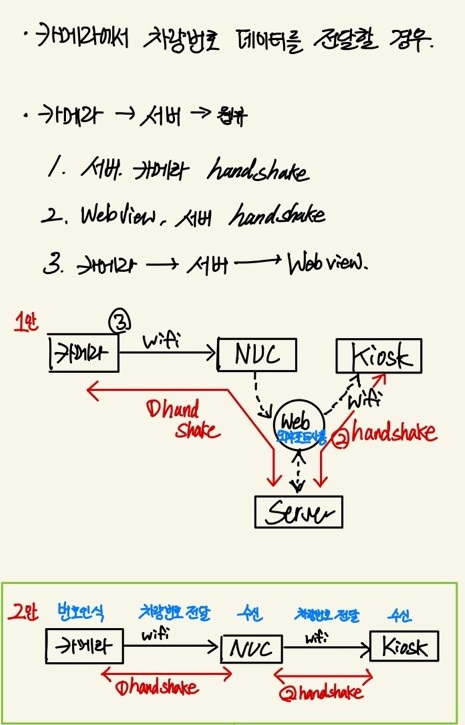 · 카메라에서 차량번호 데이터를 전달할 경우.
· 카메라 → 서버 →
1. 서버. 카메라 handshake
2. Webview. 서버 handshake
3. 카메라 → 서버 → Webview.
1안
③
카메라
wifi
NUC
Kiosk
① hand
shake
Web
wifi
② handshake
Server
2안
번호인식
차량번호 전달
수신
차량번호 전달
수신
카메라
wifi
NUC
wifi
Kiosk
① handshake
② handshake